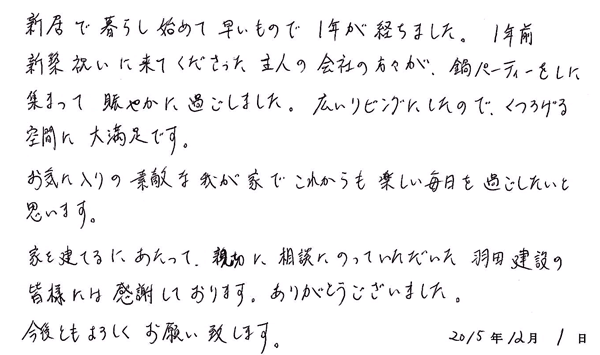 新居で暮らし始めて早いもので1年が経ちました。1年前
新築祝いに来てくださった主人の会社の方々が、鍋パーティーをしに
集まって賑やかに過ごしました。広いリビングにしたので、くつろげる
空間に大満足です。
お気に入りの素敵な我が家でこれからも楽しい毎日を過ごしたいと
思います。
家を建てるにあたって、親切に相談にのっていただいた羽田建設の
皆様には感謝しております。ありがとうございました。
今後ともよろしくお願い致します。
2015年12月1日